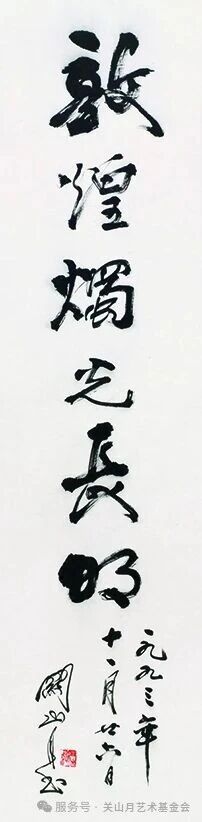 敦煌燭光長明
一九九三年
十一月廿六日
關山月書
服务号 · 关山月艺术基金会